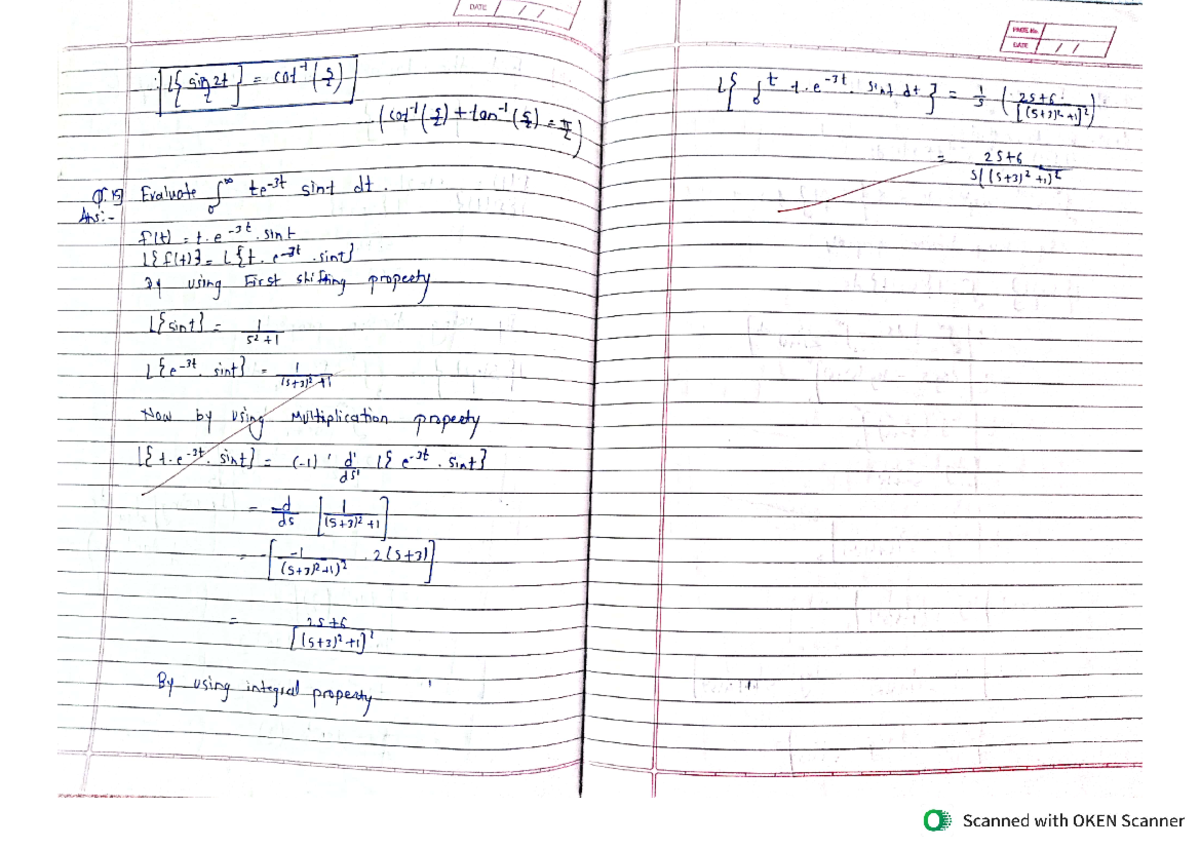 DATE / /
∴ L{sin2t/t} = cot⁻¹(s/2)
(cot⁻¹(s/2) + tan⁻¹(s/2) = π/2)
Q.15 Evaluate ∫₀^∞ te^-3t sint dt.
Ans:-
f(t) = t.e^-3t.sint
L{f(t)} = L{t.e^-3t.sint}
By using First shifting property
L{sint} = 1/(s²+1)
L{e^-3t. sint} = 1/((s+3)²+1)
Now by using Multiplication property
L{t.e^-3t. sint} = (-1)' d'/ds' L{e^-3t. sint}
= -d/ds [1/((s+3)²+1)]
= -[-1/((s+3)²+1)² . 2(s+3)]
= 2s+6/[(s+3)²+1]²
By using integral property
PAGE No.
DATE / /
L{∫₀^t t.e^-3t. sint dt} = 1/s (2s+6/[(s+3)²+1]²)
= 2s+6/s((s+3)²+1)²
Scanned with OKEN Scanner